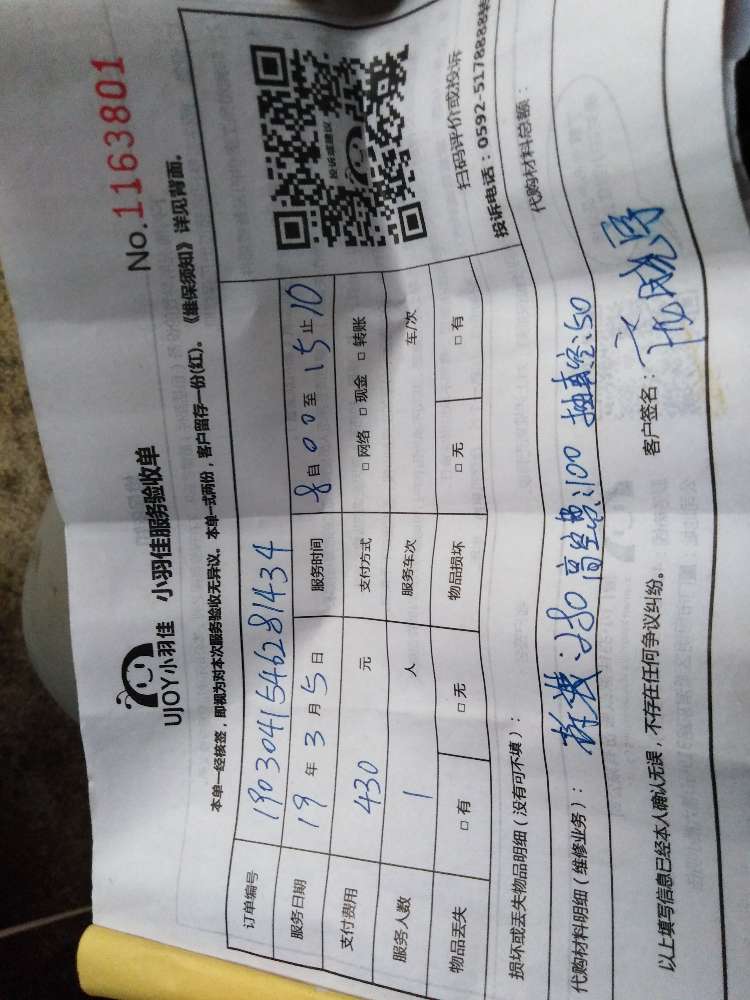 No.1163801
UJOY小羽佳 小羽佳服务验收单
本单一经核签，即视为对本次服务验收无异议。本单一式两份，客户留存一份(红)。《维保须知》详见背面。
订单编号 1903041546281434
服务日期 19 年 3 月 5 日 服务时间 8 自 00 至 15 止 10
支付费用 430 元 支付方式 □ 网络 □ 现金 □ 转账
服务人数 1 人 服务车次 车/次
物品丢失 □ 有 □ 无 物品损坏 □ 无 □ 有
投诉或建议
扫码评价或投诉
投诉电话：0592-5178888转
损坏或丢失物品明细（没有可不填）：
代购材料总额：
代购材料明细（维修业务）： 拆装:280 高空费:100 抽真空:50
以上填写信息已经本人确认无误，不存在任何争议纠纷。 客户签名：